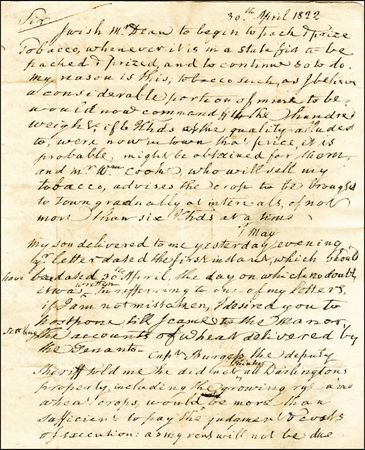 30th April 1822
Sir
I wish Mr Dean to begin to pack & prize
Tobacco, whenever it is in a state fit to be
packed & prized, and to continue so to do.
my reason is this, tobacco such, as I believe
a considerable portion of mine to be,
would now command the hundred
weight, if 6 Hhds of the quality alluded
to, were now in town that price, it is
probable, might be obtained for them
and Mr Wm Cooke, who will sell my
tobacco, advises the crop to be brought
to town gradually at intervals, of not
more than six Hhds at a time
1 May
my son delivered to me yesterday evening
yr Letter dated the first instant, which should
have been dated 30th April, the day on which no doubt,
it was written In refferring to one of my Letters,
if I am not mistaken, I desired you to
postpone till I came to the Manor,
settling the accounts of wheat delivered by
the Tenants. Capt Burgess the deputy
Sheriff told me he did not think all Darlingtons
property, including the growing rye and
wheat crops, would be more than
sufficient to pay the judgment & costs
of execution: as my rent will not be due